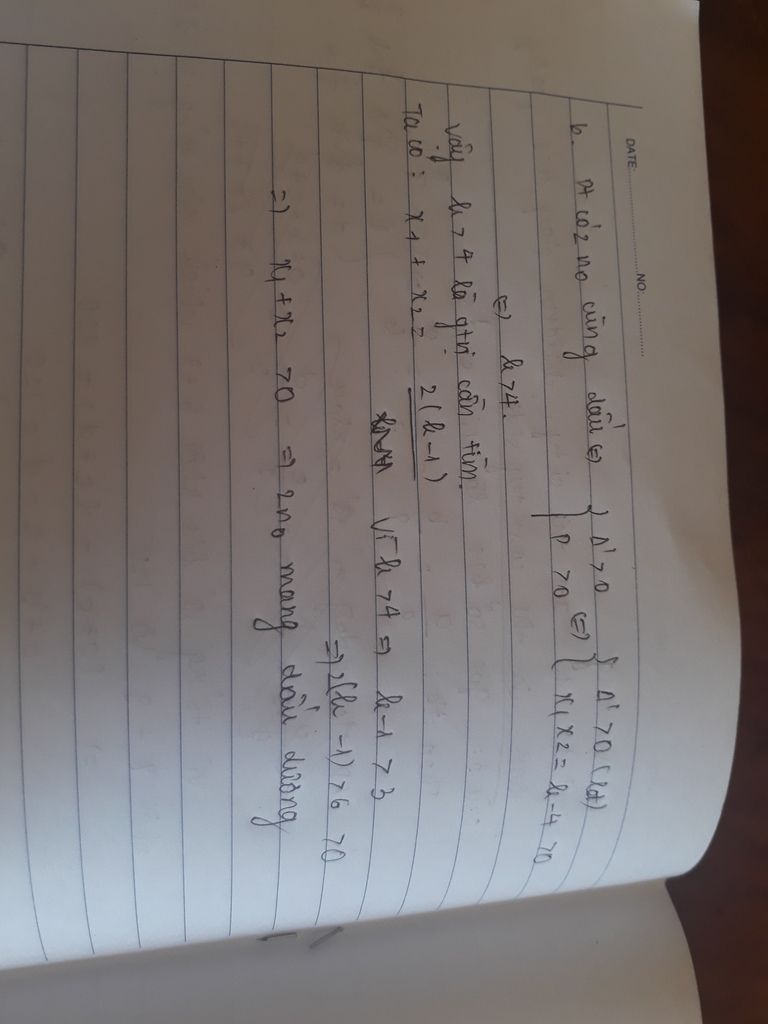 DATE:.................. NO:..................
b. Pt có 2 no cùng dấu (=) { Δ' > 0 { Δ' > 0 (lđ)
P > 0 (=) { x1 x2 = k - 4 > 0
(=) k > 4.
Vậy k > 4 là gtri cần tìm.
Ta có: x1 + x2 = 2(k-1)
Vì k > 4 => k-1 > 3
=> 2(k-1) > 6 > 0
=> x1 + x2 > 0 => 2 no mang dấu dương